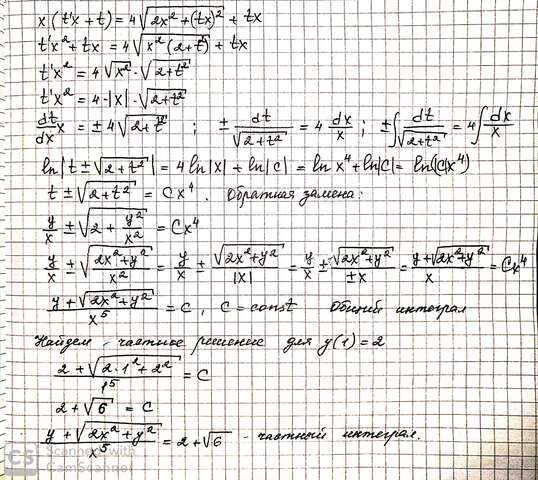 x(t'x + t) = 4√(2x² + (tx)²) + tx
t'x² + tx = 4√(x²(2+t²)) + tx
t'x² = 4√(x²) · √(2+t²)
t'x² = 4·|x|·√(2+t²)
dt/dx x = ± 4√(2+t²) ; ± dt/√(2+t²) = 4 dx/x ; ±∫ dt/√(2+t²) = 4∫ dx/x
ln|t ± √(2+t²)| = 4 ln|x| + ln|C| = ln x⁴ + ln|C| = ln(|C|x⁴)
t ± √(2+t²) = Cx⁴. Обратная замена:
y/x ± √(2 + y²/x²) = Cx⁴
y/x ± √((2x²+y²)/x²) = y/x ± √(2x²+y²)/|x| = y/x ± √(2x²+y²)/±x = (y+√(2x²+y²))/x = Cx⁴
(y+√(2x²+y²))/x⁵ = C, C = const Общий интеграл
Найдем частное решение для y(1) = 2
(2 + √(2·1² + 2²))/1⁵ = C
2 + √6 = C
(y + √(2x²+y²))/x⁵ = 2+√6 - частный интеграл.
CS Scanned with
CamScanner